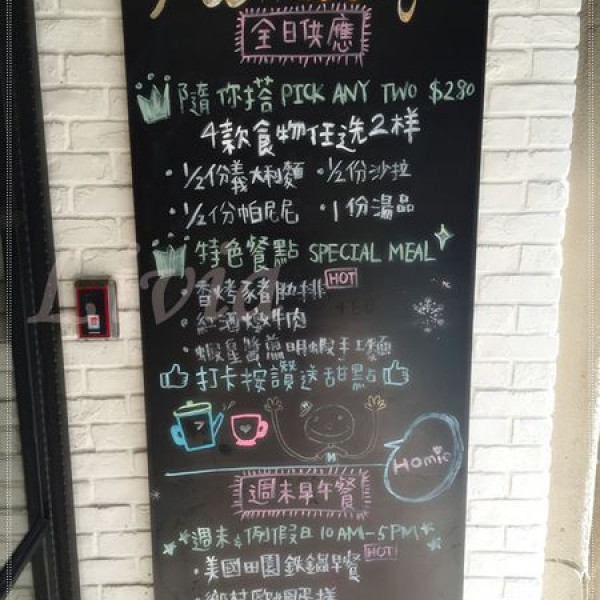 全日供應
隨你搭 PICK ANY TWO $280
4款食物任选2样
·1/2份義大利麵 ·1/2份沙拉
·1/2份帕尼尼 ·1份湯品
特色餐點 SPECIAL MEAL
香烤豬肋排 HOT
·紅酒燉牛肉
·蝦皇醬煎明蝦手工麵
打卡按讚送甜點
Homie
週末早午餐
週末&例假日 10AM-5PM
·美國田園鉄鍋早餐 HOT!
Livia